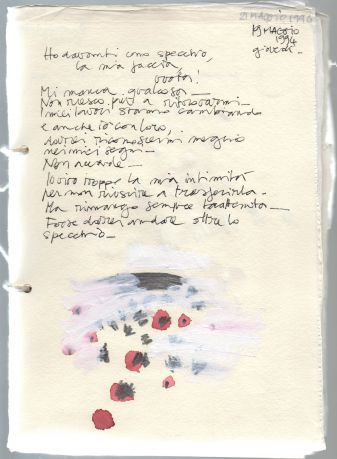 21 MAGGIO 1994
19 MAGGIO
1994
giovedì.
Ho davanti uno specchio,
la mia faccia,
vuota!
Mi manca qualcosa
Non riesco più a ritrovarmi.
I miei lavori stanno cambiando
e anche io con loro,
dovrei riconoscermi meglio
nei miei segni
Non accade
Io vivo troppo la mia intimità
per non riuscire a trasferirla
Ma rimango sempre
Forse dovrei andare oltre lo
specchio